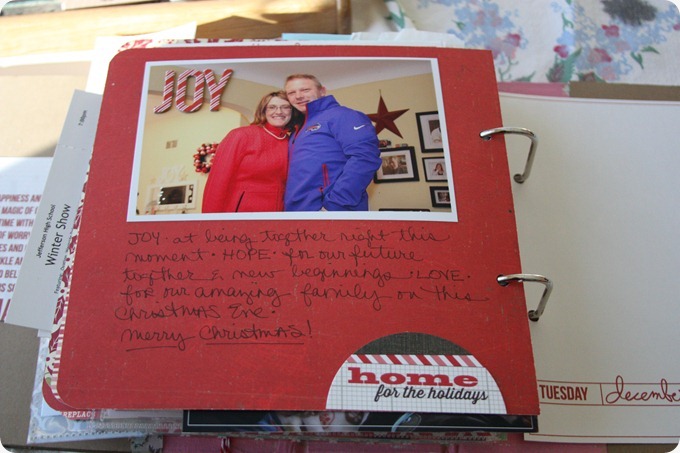 JOY
JOY · at being together right this
moment · HOPE · for our future
together & new beginnings · LOVE ·
for our amazing family on this
CHRISTMAS Eve.
merry CHRISTMAS!
home
for the holidays
Jefferson High School
Winter Show
HAPPINESS AN
MAGIC OF
TIME WITH
OF WORR
REPLAC
TUESDAY
december